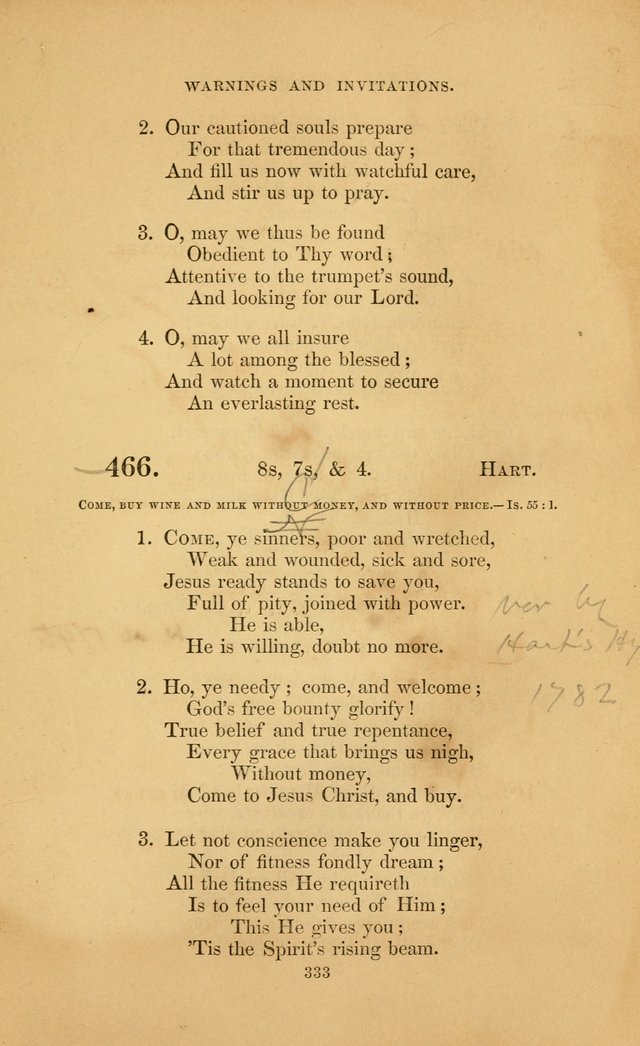 WARNINGS AND INVITATIONS.
2. Our cautioned souls prepare
For that tremendous day;
And fill us now with watchful care,
And stir us up to pray.
3. O, may we thus be found
Obedient to Thy word;
Attentive to the trumpet's sound,
And looking for our Lord.
4. O, may we all insure
A lot among the blessed;
And watch a moment to secure
An everlasting rest.
466. 8s, 7s, & 4. HART.
COME, BUY WINE AND MILK WITHOUT MONEY, AND WITHOUT PRICE.—IS. 55:1.
1. COME, ye sinners, poor and wretched,
Weak and wounded, sick and sore,
Jesus ready stands to save you,
Full of pity, joined with power.
He is able,
He is willing, doubt no more.
by
Hart's Hy
1782
2. Ho, ye needy; come, and welcome;
God's free bounty glorify!
True belief and true repentance,
Every grace that brings us nigh,
Without money,
Come to Jesus Christ, and buy.
3. Let not conscience make you linger,
Nor of fitness fondly dream;
All the fitness He requireth
Is to feel your need of Him;
This He gives you;
'Tis the Spirit's rising beam.
333